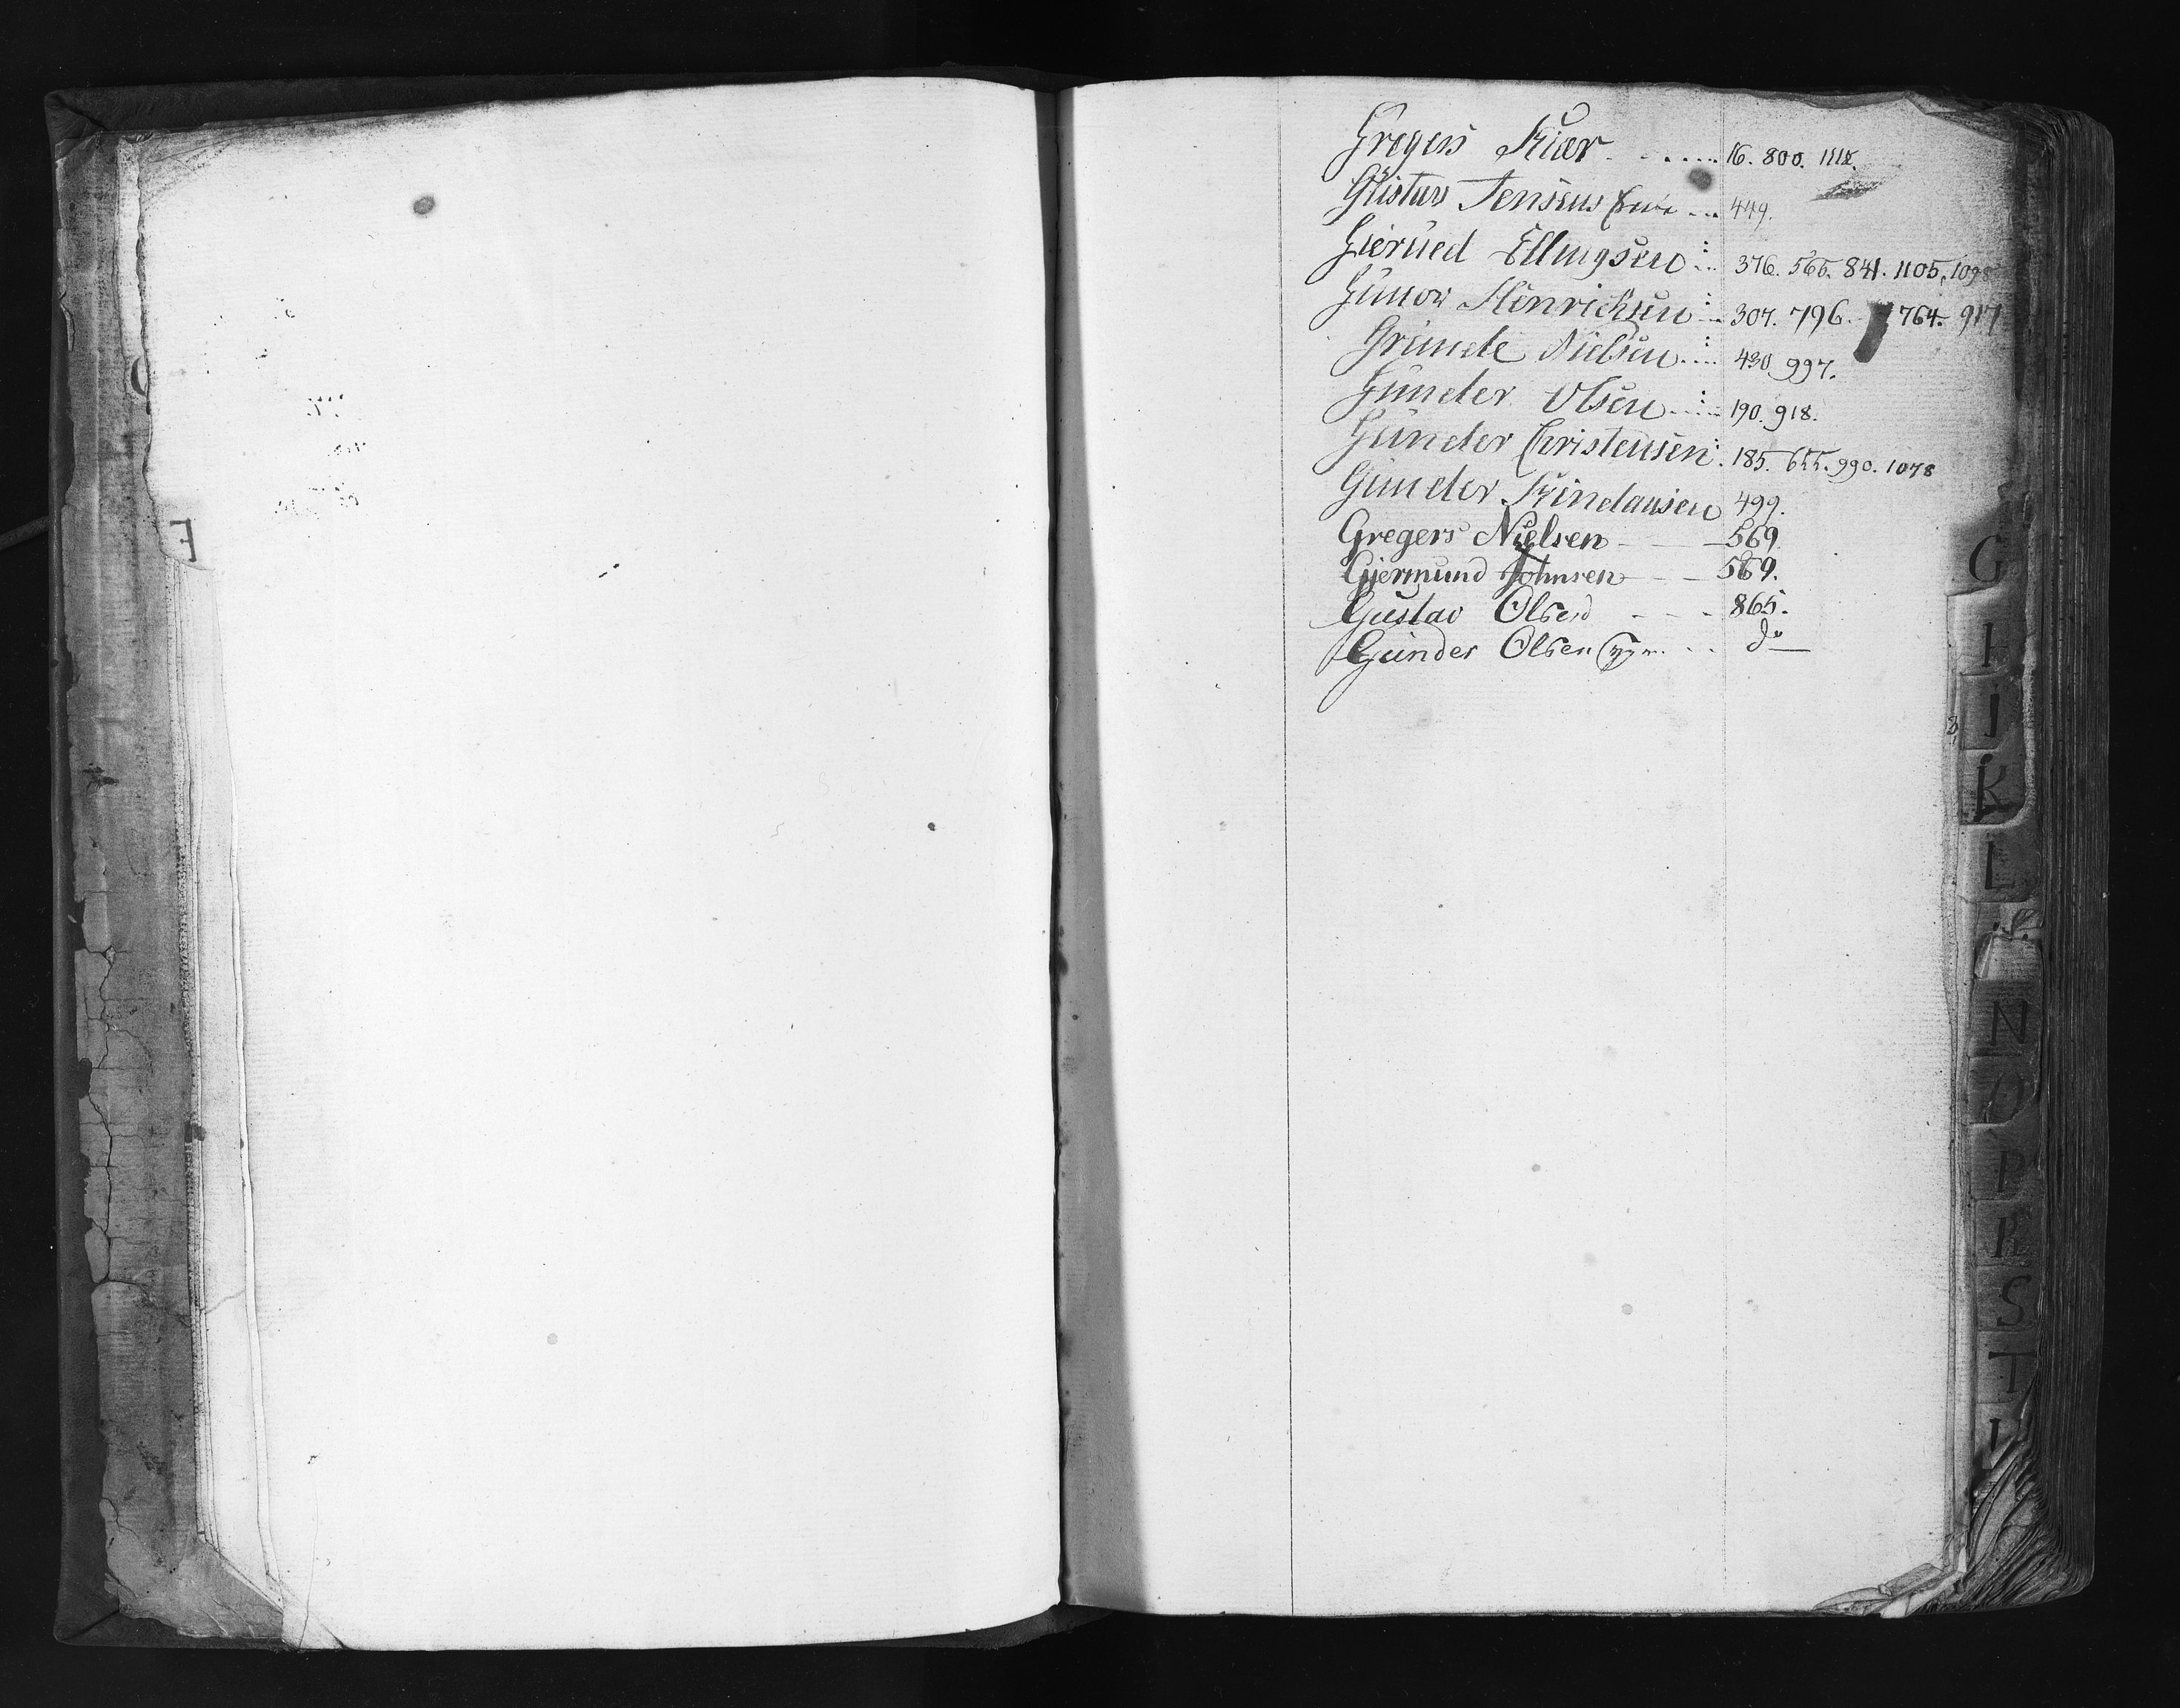 Gregers Kiær ...... 16. 800. 1112.
Gustav Jensens ... 449.
Gierued Ellingsen ... 376. 565. 841. 1105. 1098
Gunior Henrichsen ... 307. 796. 764. 917
Grunde Nielsen .... 430. 997.
Gunder Olsen ..... 190. 918.
Gunder Christensen . 185. 655. 990. 1078
Gunder 499.
Gregers Nielsen - - 569.
Gjermund Johnsen - - 569.
Gustav Olsen - - - 865.
Gunder Olsen . . do
F
G
I
I
K
L
N
O
P
R
S
T